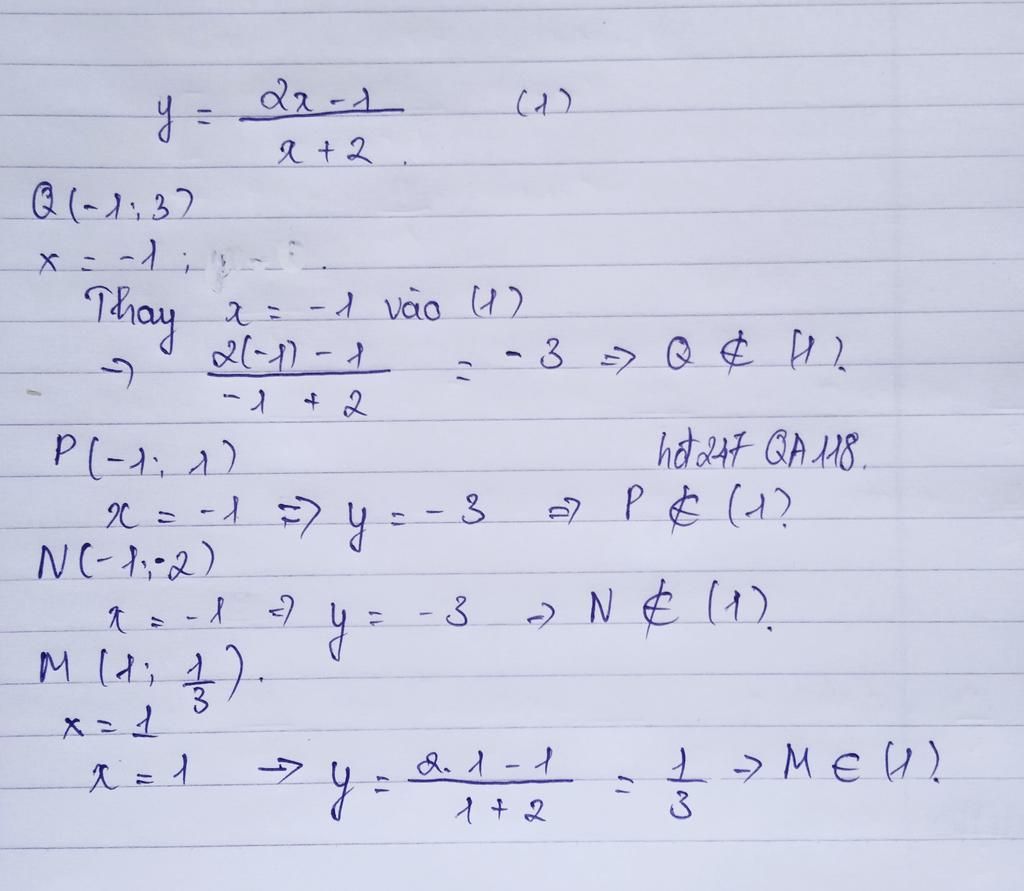 y = \frac{2x - 1}{x + 2} (1)
Q(-1; 3)
x = -1;
Thay x = -1 vào (1)
→ \frac{2(-1) - 1}{-1 + 2} = -3 ⇒ Q ∉ (1).
P(-1; 1) hot247 QA118.
x = -1 ⇒ y = -3 ⇒ P ∉ (1)
N(-1; -2)
x = -1 ⇒ y = -3 → N ∉ (1)
M (1; \frac{1}{3}).
x = 1
x = 1 → y = \frac{2.1 - 1}{1 + 2} = \frac{1}{3} → M ∈ (1).